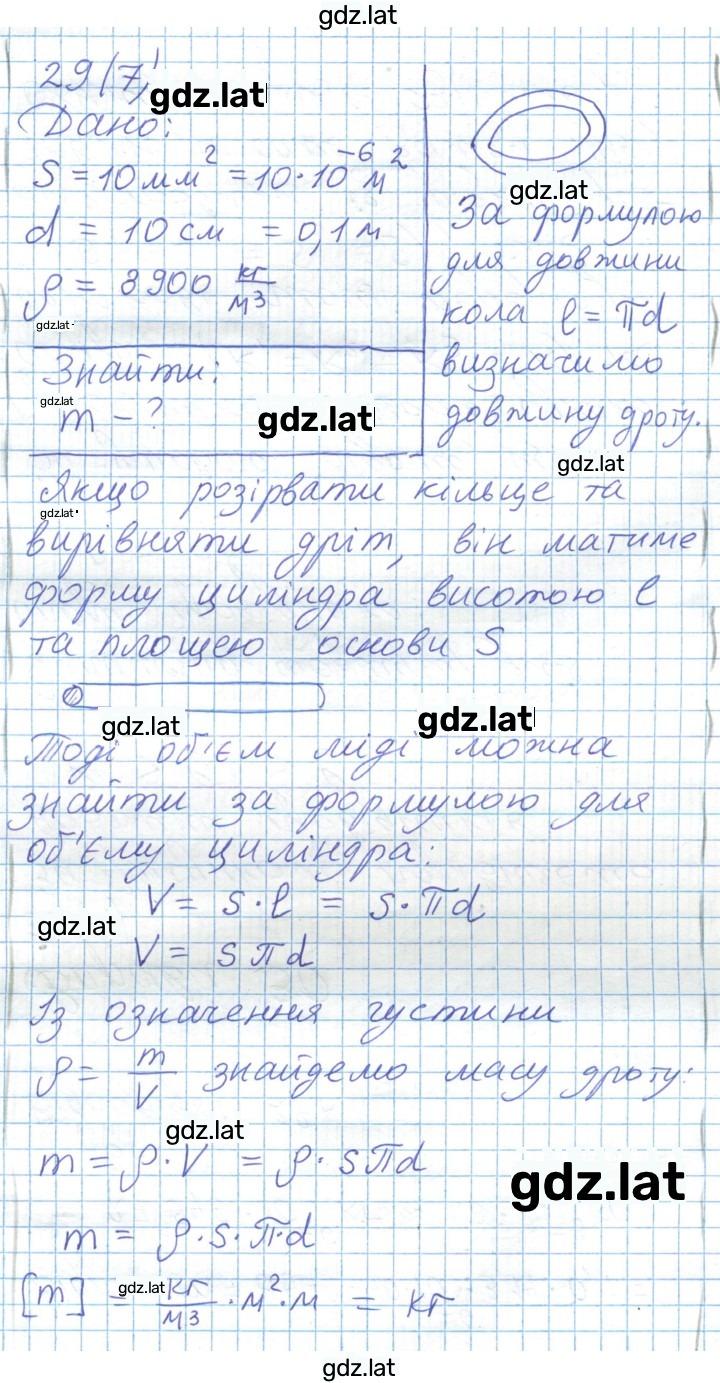 gdz.lat
29(7)
gdz.lat
Дано:
S = 10 мм² = 10·10⁻⁶ м²
d = 10 см = 0,1 м
ρ = 8900 кг/м³
gdz.lat
Знайти:
gdz.lat
m - ?
gdz.lat
gdz.lat
За формулою
для довжини
кола l = πd
визначимо
довжину дроту.
gdz.lat
Якщо розірвати кільце та
gdz.lat
вирівняти дріт, він матиме
форму циліндра висотою l
та площею основи S
gdz.lat
gdz.lat
Тоді об'єм міді можна
знайти за формулою для
об'єму циліндра:
V = S·l = S·πd
gdz.lat
V = Sπd
Із означення густини
ρ = m/V знайдемо масу дроту:
gdz.lat
m = ρ·V = ρ·Sπd
gdz.lat
m = ρ·S·π·d
gdz.lat
[m] = кг/м³·м²·м = кг
gdz.lat